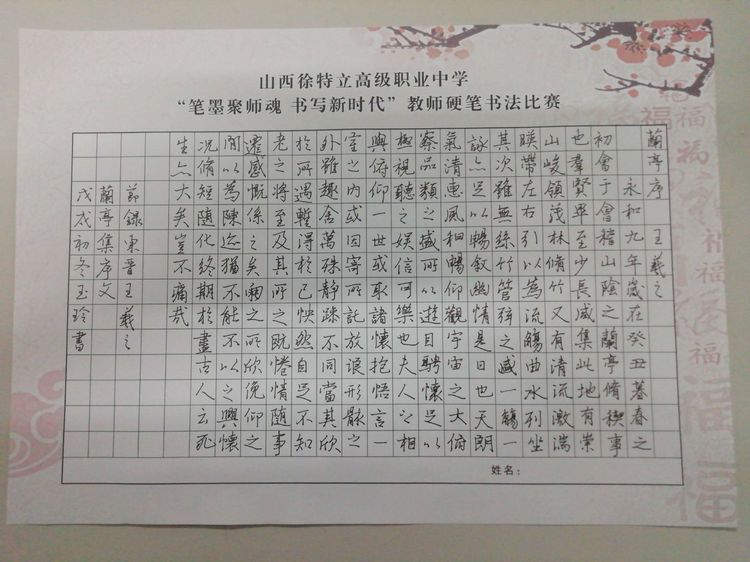 山西徐特立高级职业中学
“笔墨聚师魂 书写新时代”教师硬笔书法比赛
蘭亭序 王羲之
永和九年歲在癸丑暮春之
初會于會稽山陰之蘭亭脩稧事
也羣賢畢至少長咸集此地有崇
山峻領茂林脩竹又有清流激湍
暎帶左右引以為流觴曲水列坐
其次雖無絲竹管弦之盛一觴一
詠亦足以暢敘幽情是日也天朗
氣清惠風和暢仰觀宇宙之大俯
察品類之盛所以遊目騁懷足以
極視聽之娛信可樂也夫人之相
與俯仰一世或取諸懷抱悟言一
室之內或因寄所託放浪形骸之
外雖趣舍萬殊靜躁不同當其欣
於所遇蹔得於己怏然自足不知
老之將至及其所之既惓情隨事
遷感慨係之矣向之所欣俛仰之
間以為陳迹猶不能不以之興懷
况脩短隨化終期於盡古人云死
生亦大矣豈不痛哉
節錄東晉王羲之
蘭亭集序文
戊戌初冬玉玲書
姓名：